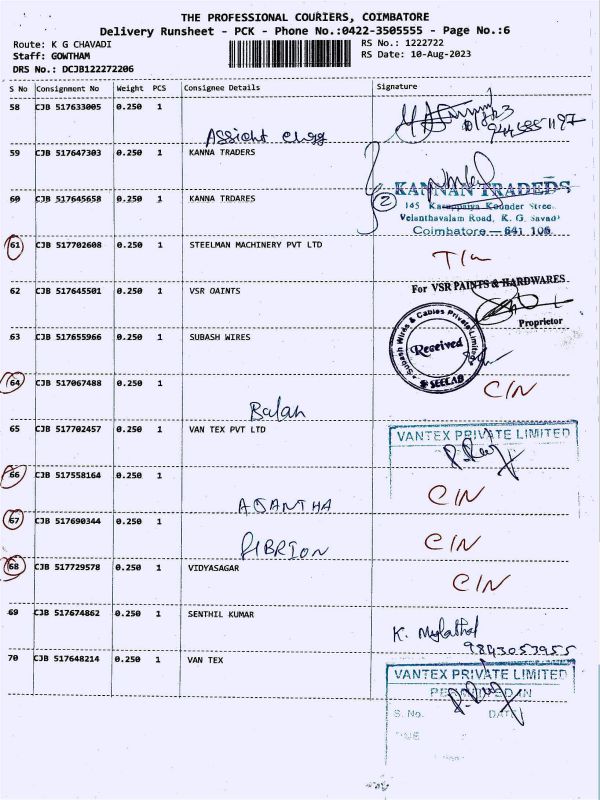 THE PROFESSIONAL COURIERS, COIMBATORE
Delivery Runsheet - PCK - Phone No.:0422-3505555 - Page No.:6
Route: K G CHAVADI
Staff: GOWTHAM
DRS No.: DCJB122272206
RS No.: 1222722
RS Date: 10-Aug-2023
S No Consignment No Weight PCS Consignee Details Signature
58 CJB 517633005 0.250 1
59 CJB 517647303 0.250 1 KANNA TRADERS
60 CJB 517645658 0.250 1 KANNA TRDARES
2
KANNAN TRADEDS
145 Karuppaiya Kounder Stree.
Velanthavalam Road, K. G. Savadi
Coimbatore — 641 105
61 CJB 517702608 0.250 1 STEELMAN MACHINERY PVT LTD
62 CJB 517645501 0.250 1 VSR OAINTS
For VSR PAINTS & HARDWARES
Proprietor
63 CJB 517655966 0.250 1 SUBASH WIRES
Subash Wires & Cables Private Limited
Received
SEELAB
64 CJB 517067488 0.250 1 Balah C/N
65 CJB 517702457 0.250 1 VAN TEX PVT LTD
VANTEX PRIVATE LIMITED
66 CJB 517558164 0.250 1 AJANTHA C/N
67 CJB 517690344 0.250 1 FIBRION C/N
68 CJB 517729578 0.250 1 VIDYASAGAR C/N
69 CJB 517674862 0.250 1 SENTHIL KUMAR
K. Mylathal
9843053955
70 CJB 517648214 0.250 1 VAN TEX
VANTEX PRIVATE LIMITED
PERMITTED IN
S. No. DATE